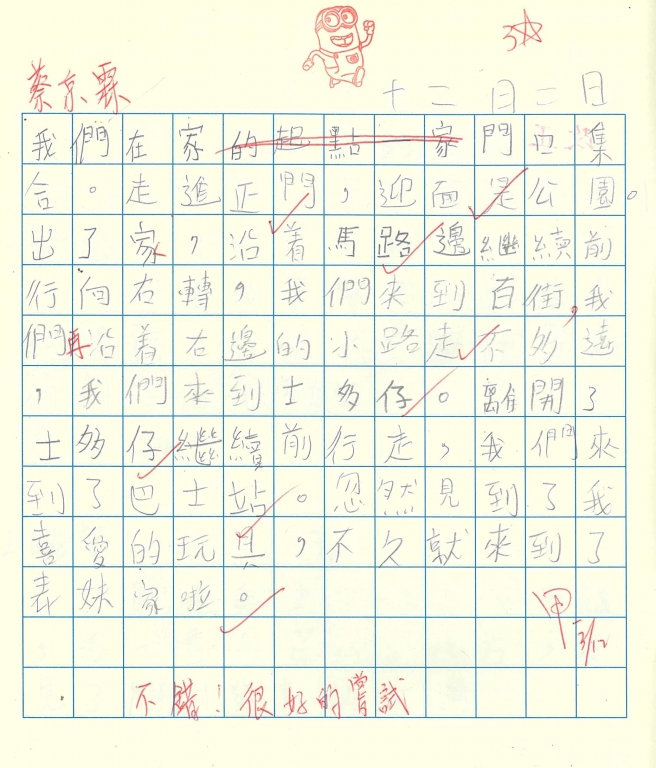 3☆
蔡京霖
十二日二日
我們在家的起點一家門口集
合。走進正門，迎面是公園。
出了家，沿着馬路邊繼續前
行向右轉，我們來到百街，我
們再沿着右邊的小路走不多遠
，我們來到士多仔。離開了
士多仔繼續前行走，我們來
到了巴士站。忽然見到了我
喜愛的玩具，不久就來到了
表妹家啦。
甲
3/12
不錯！很好的嘗試